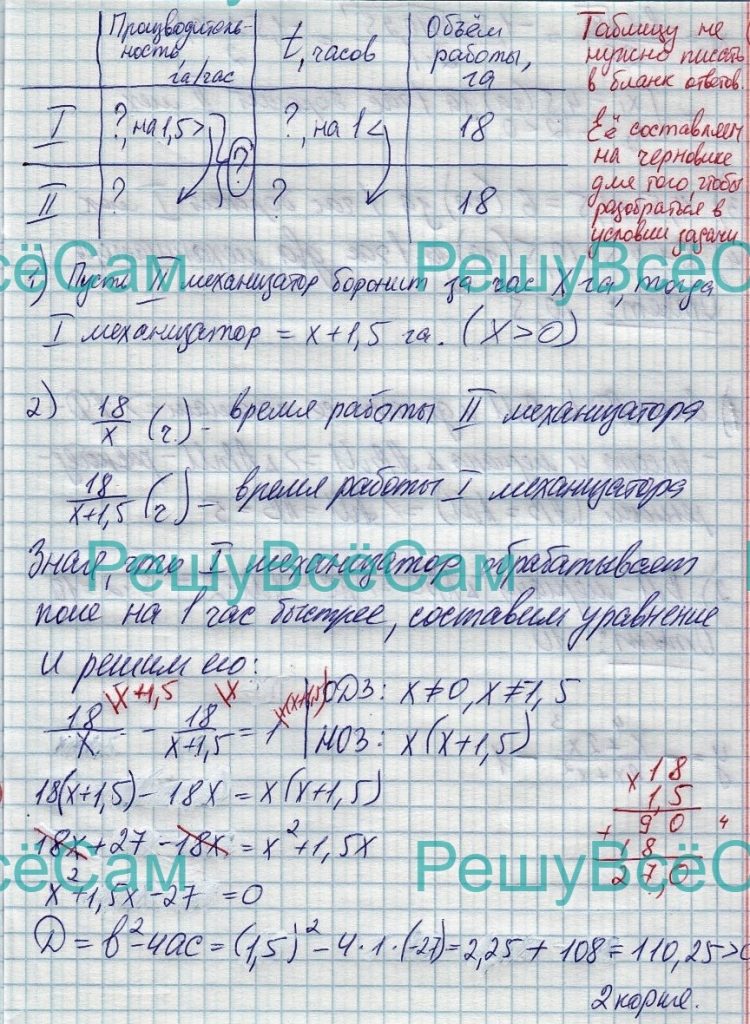 Производитель-
ность,
га/час
t, часов
Объём
работы,
га
Таблицу не
нужно писать
в бланк ответов.
Её составляем
на черновике
для того, чтобы
разобраться в
условии задачи
I ?, на 1,5 > ?, на 1 < 18
?
II ? ? 18
РешуВсёСам РешуВсёСам
1) Пусть II механизатор боронит за час x га, тогда
I механизатор = x+1,5 га. (x>0)
2) 18/x (ч.) - время работы II механизатора
18/(x+1,5) (ч) - время работы I механизатора
Зная, что I механизатор обрабатывает
РешуВсёСам
поле на 1 час быстрее, составим уравнение
и решим его:
18/x |x+1,5 - 18/(x+1,5) |x = 1 |x(x+1,5)
ОДЗ: x≠0, x≠-1,5
НОЗ: x(x+1,5)
18(x+1,5) - 18x = x(x+1,5)
18x+27-18x = x²+1,5x
x²+1,5x-27 = 0
x 18
1,5
+ 90
18
27,0
РешуВсёСам РешуВсёСам
D = b²-4ac = (1,5)²-4·1·(-27) = 2,25+108 = 110,25>0
2 корня.